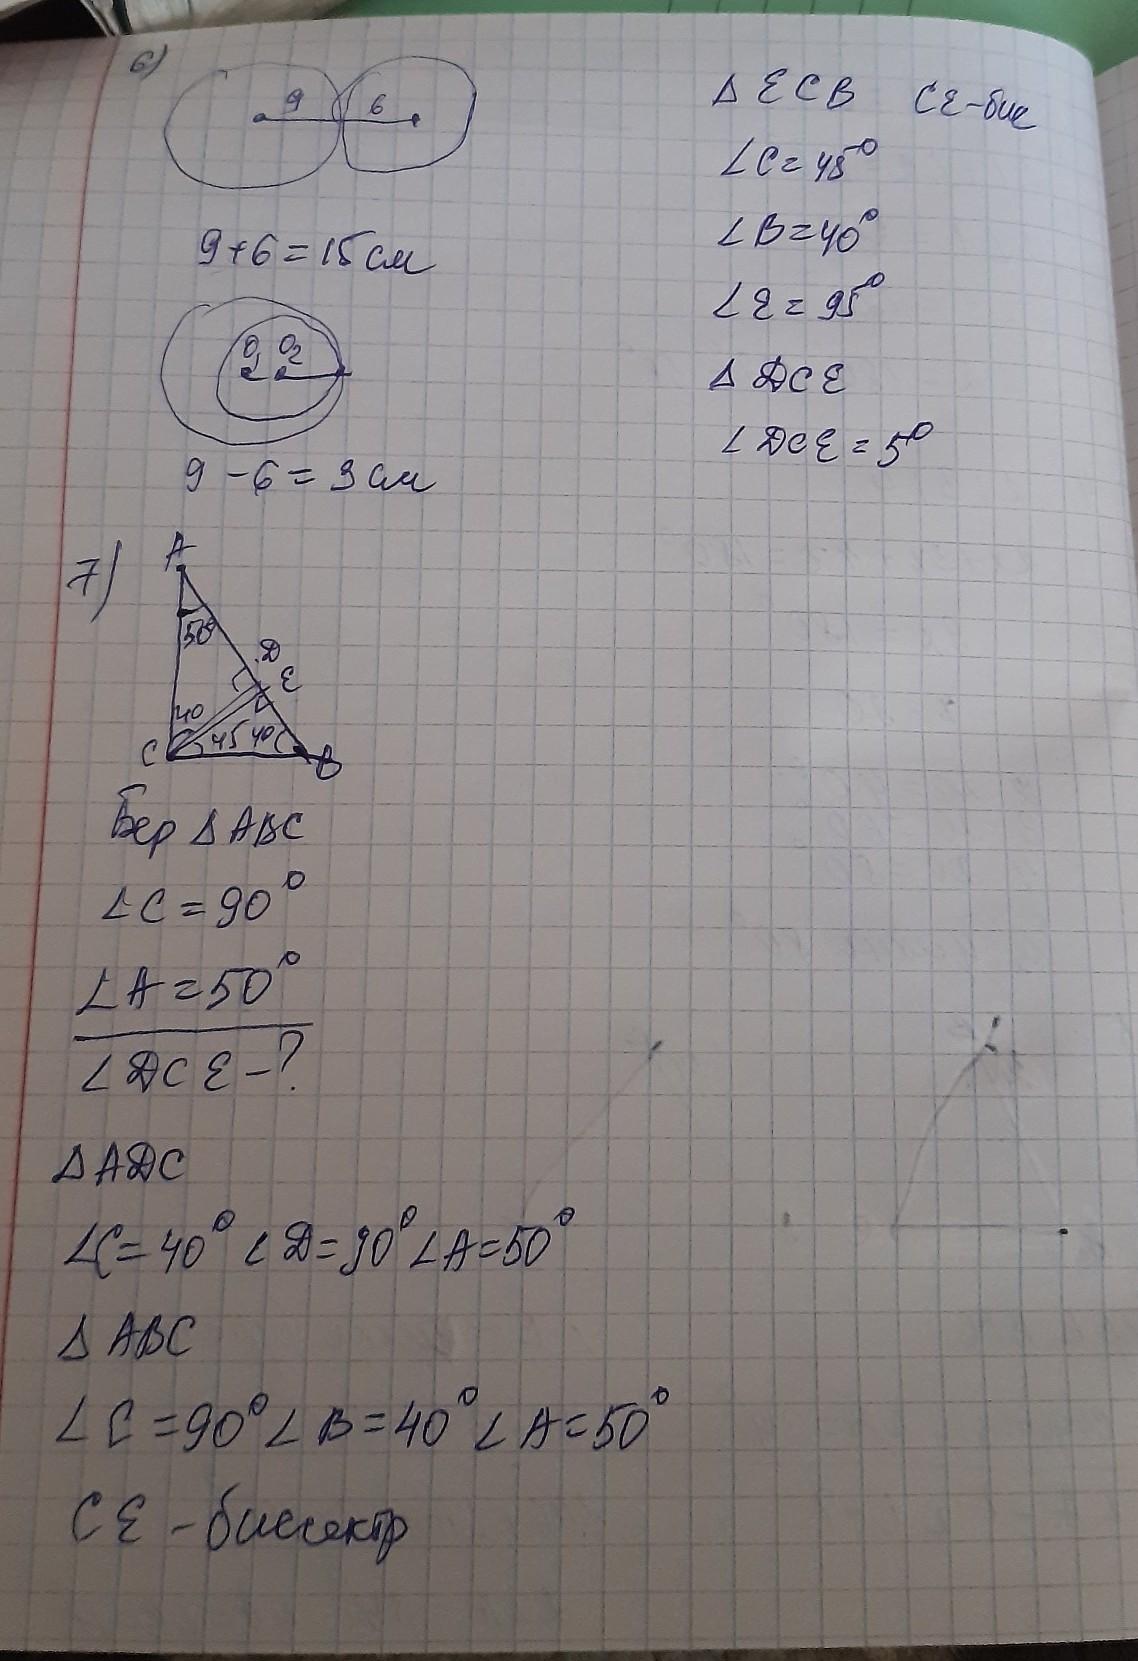 6)
9 6
9+6=15см
O₁ O₂
9-6=3см
7)
A
50°
D
E
40
C 45 40 B
Бер ΔABC
∠C=90°
∠A=50°
∠DCE-?
ΔADC
∠C=40° ∠D=90° ∠A=50°
ΔABC
∠C=90° ∠B=40° ∠A=50°
CE - биссектр
ΔECB CE-бис
∠C=45°
∠B=40°
∠E=95°
ΔDCE
∠DCE=5°